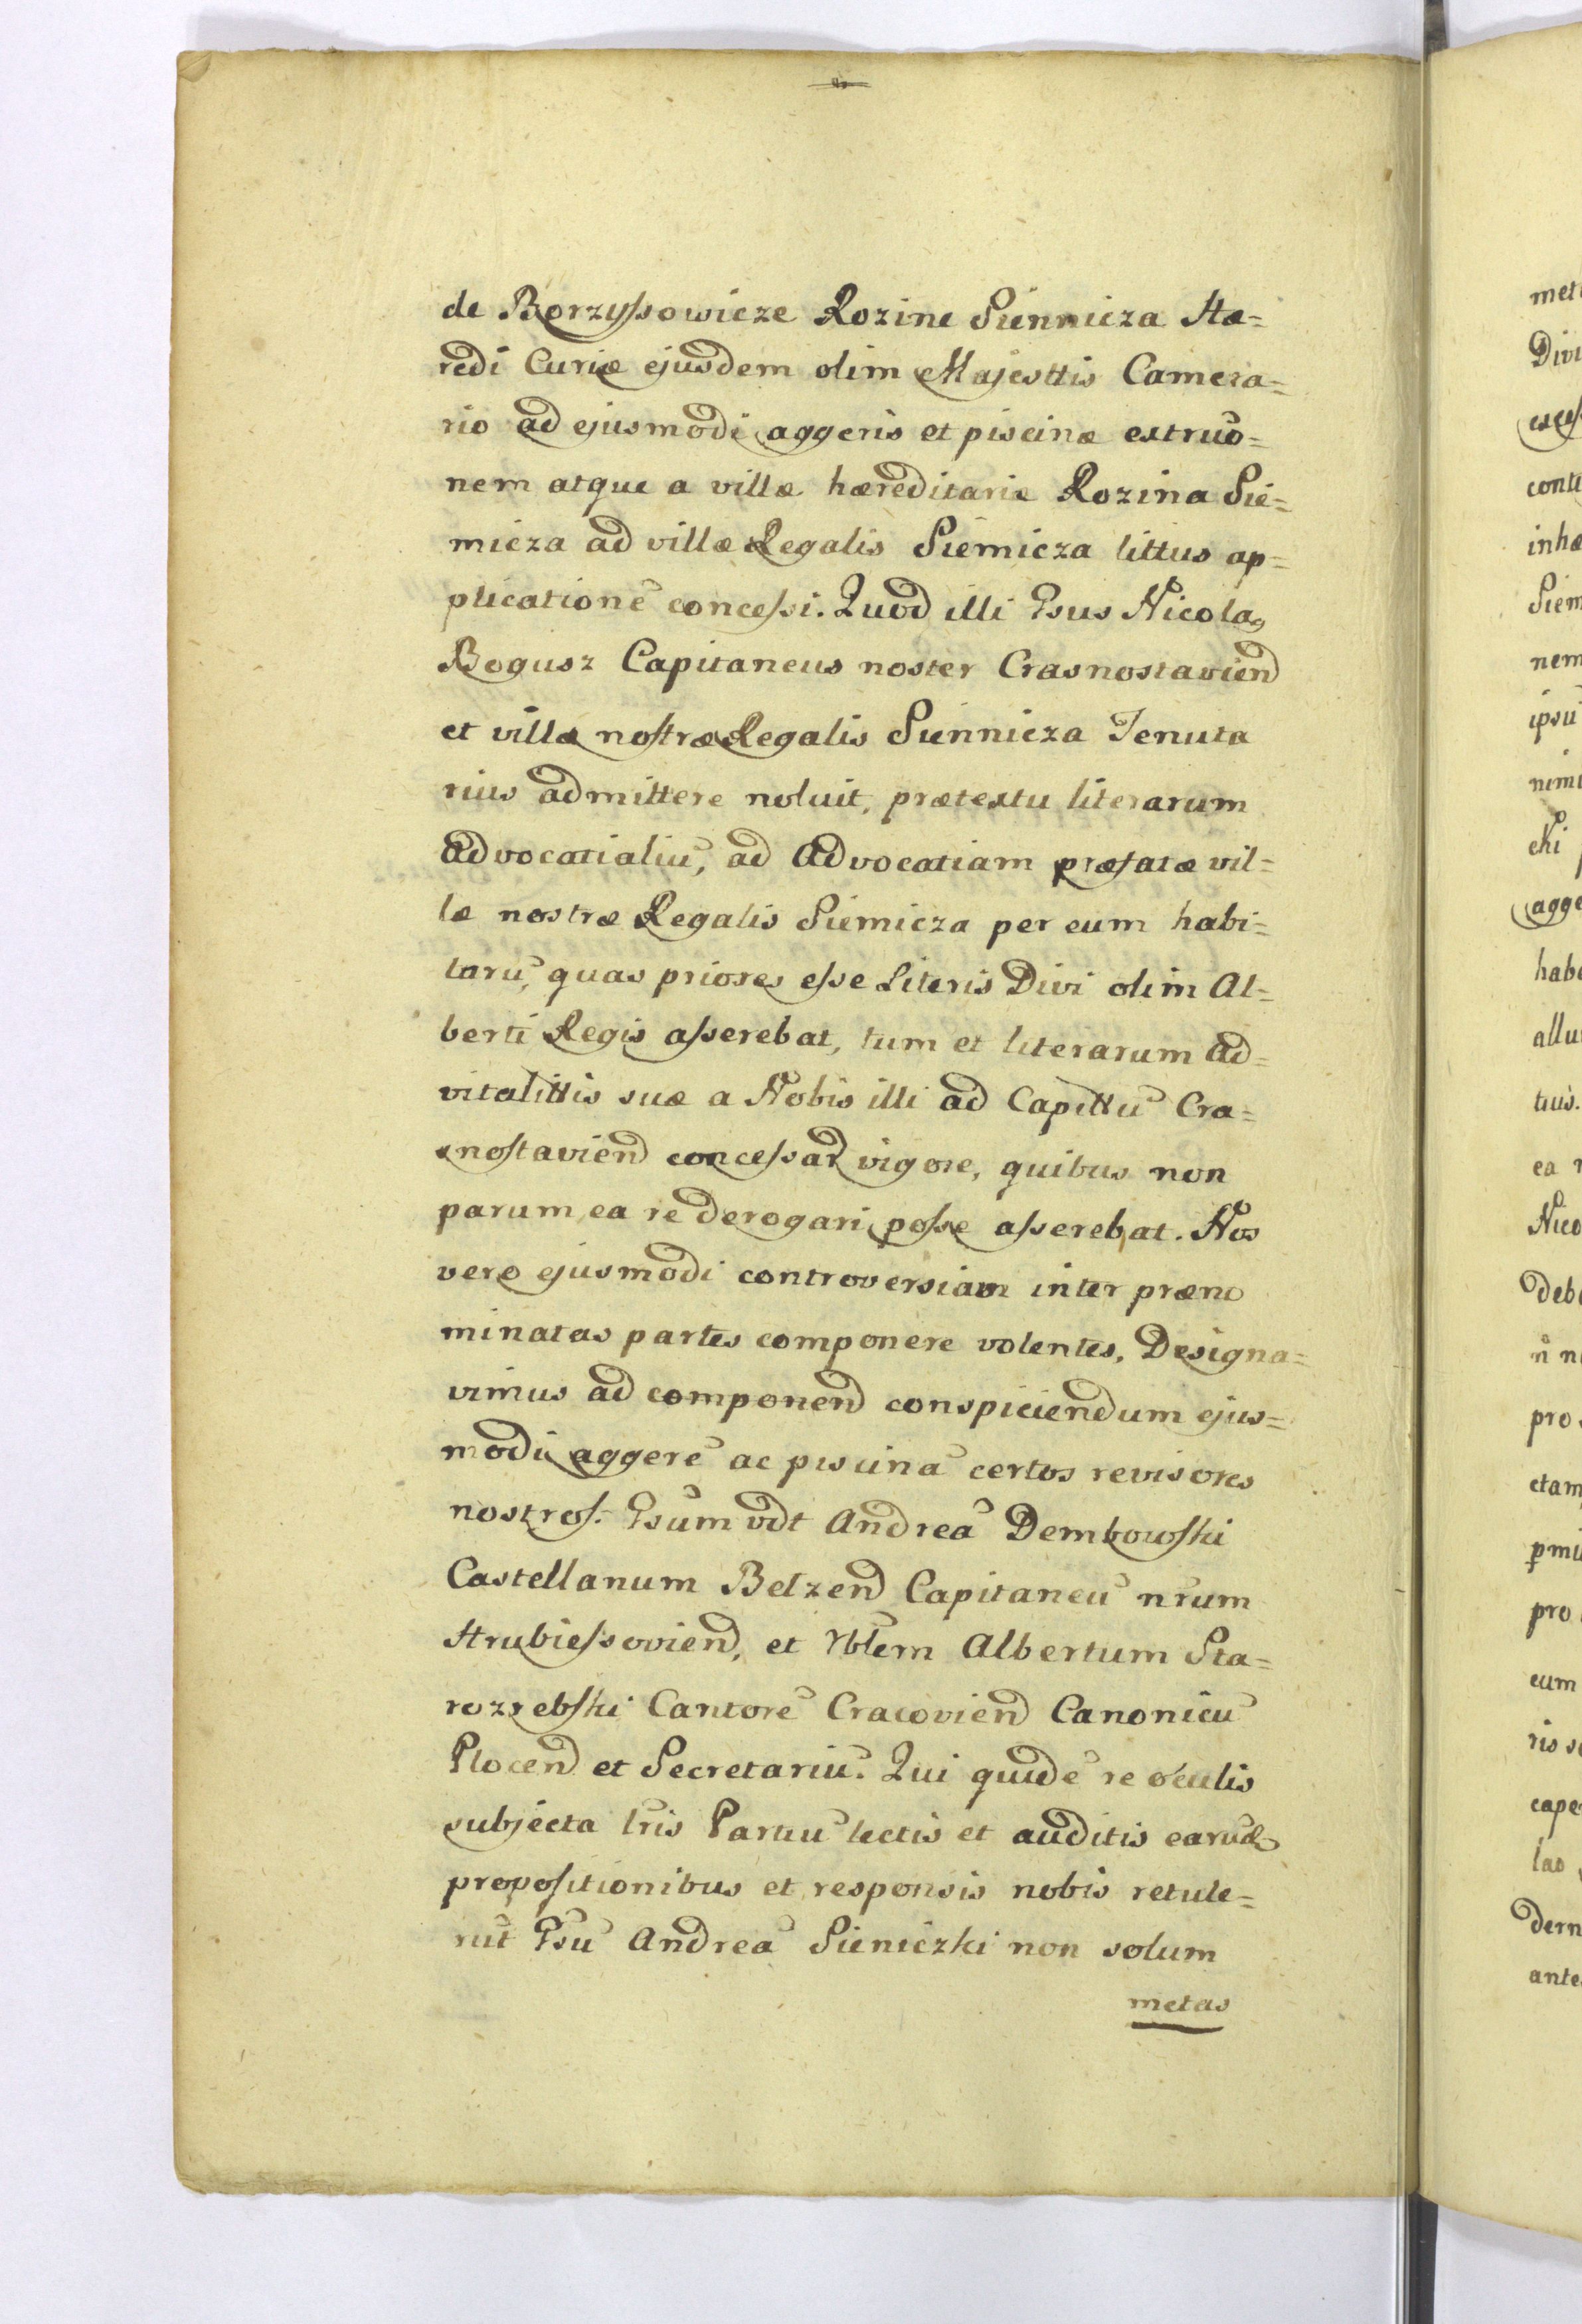 de Borzyssowicze Rozine Siennicza Hæ=
redi Curiæ ejusdem olim Majesttis Camera=
rio ad ejusmodi aggeris et piscinæ extruo=
nem atque a villæ hæreditariæ Rozina Sie=
micza ad villæ Regalis Siemicza littus ap=
plicationē concessi. Quod illi Gsus Nicola9
Bogusz Capitaneus noster Crasnostavien
et villæ nostræ Regalis Siennicza Tenuta
rius admittere noluit, prætextu literarum
advocatialiū, ad advocatiam præfatæ vil=
læ nostræ Regalis Siemicza per eum habi=
tarū, quas priores esse Literis Divi olim Al=
berti Regis asserebat, tum et literarum ad=
vitalittis suæ a Nobis illi ad Capittū Cra=
snostavien concessar vigore, quibus non
parum ea re derogari posse asserebat. Nos
vero ejusmodi controversiam inter præno
minatas partes componere volentes, Designa=
vimus ad componend conspiciendum ejus=
modi aggerē ac piscinā certos revisores
nostros. Gsum vdt Andreā Dembowski
Castellanum Belzen Capitaneū nrum
Hrubiessovien, et Vblem Albertum Sta=
rozrebski Cantorē Cracovien Canonicū
Plocen et Secretariū. Qui quidē re oculis
subjecta lris Partiū lectis et auditis earūd
propositionibus et responsis nobis retule=
rūt Gsū Andreā Sieniczki non solum
metas
met
Divi
contr
inhæ
Siem
nem
ipsū
nimi
chi
agge
habe
allu
tius.
ea
Nico
debe
pro
etam
pro
eum
ris
cape
las
dern
ante